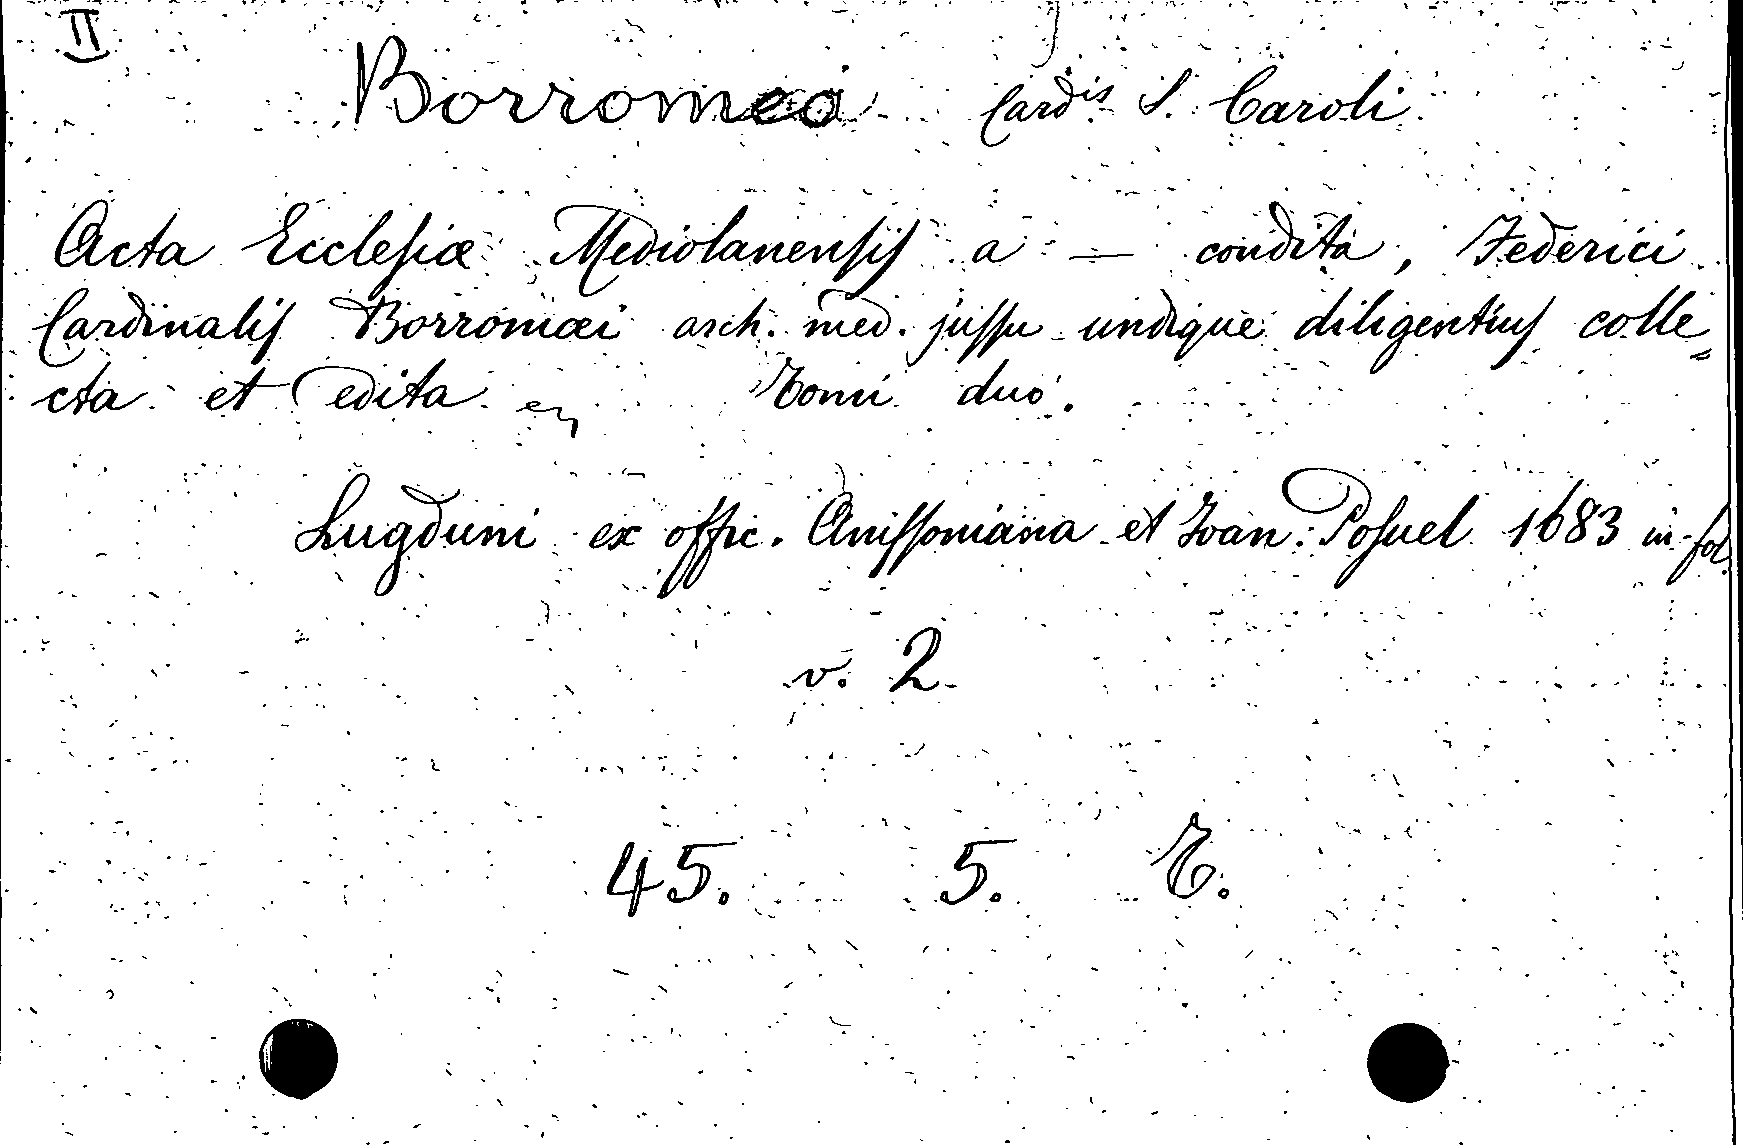 II
Borromeo Card.is S. Caroli
Acta Ecclesiæ Mediolanensis a — condita, Federici
Cardinalis Borromæi arch. med. jussu undique diligentius colle
cta et edita Tomi duo.
Lugduni ex offic. Anissoniana et Ioan: Posuel 1683 in-fol.
v. 2.
45. 5. E.